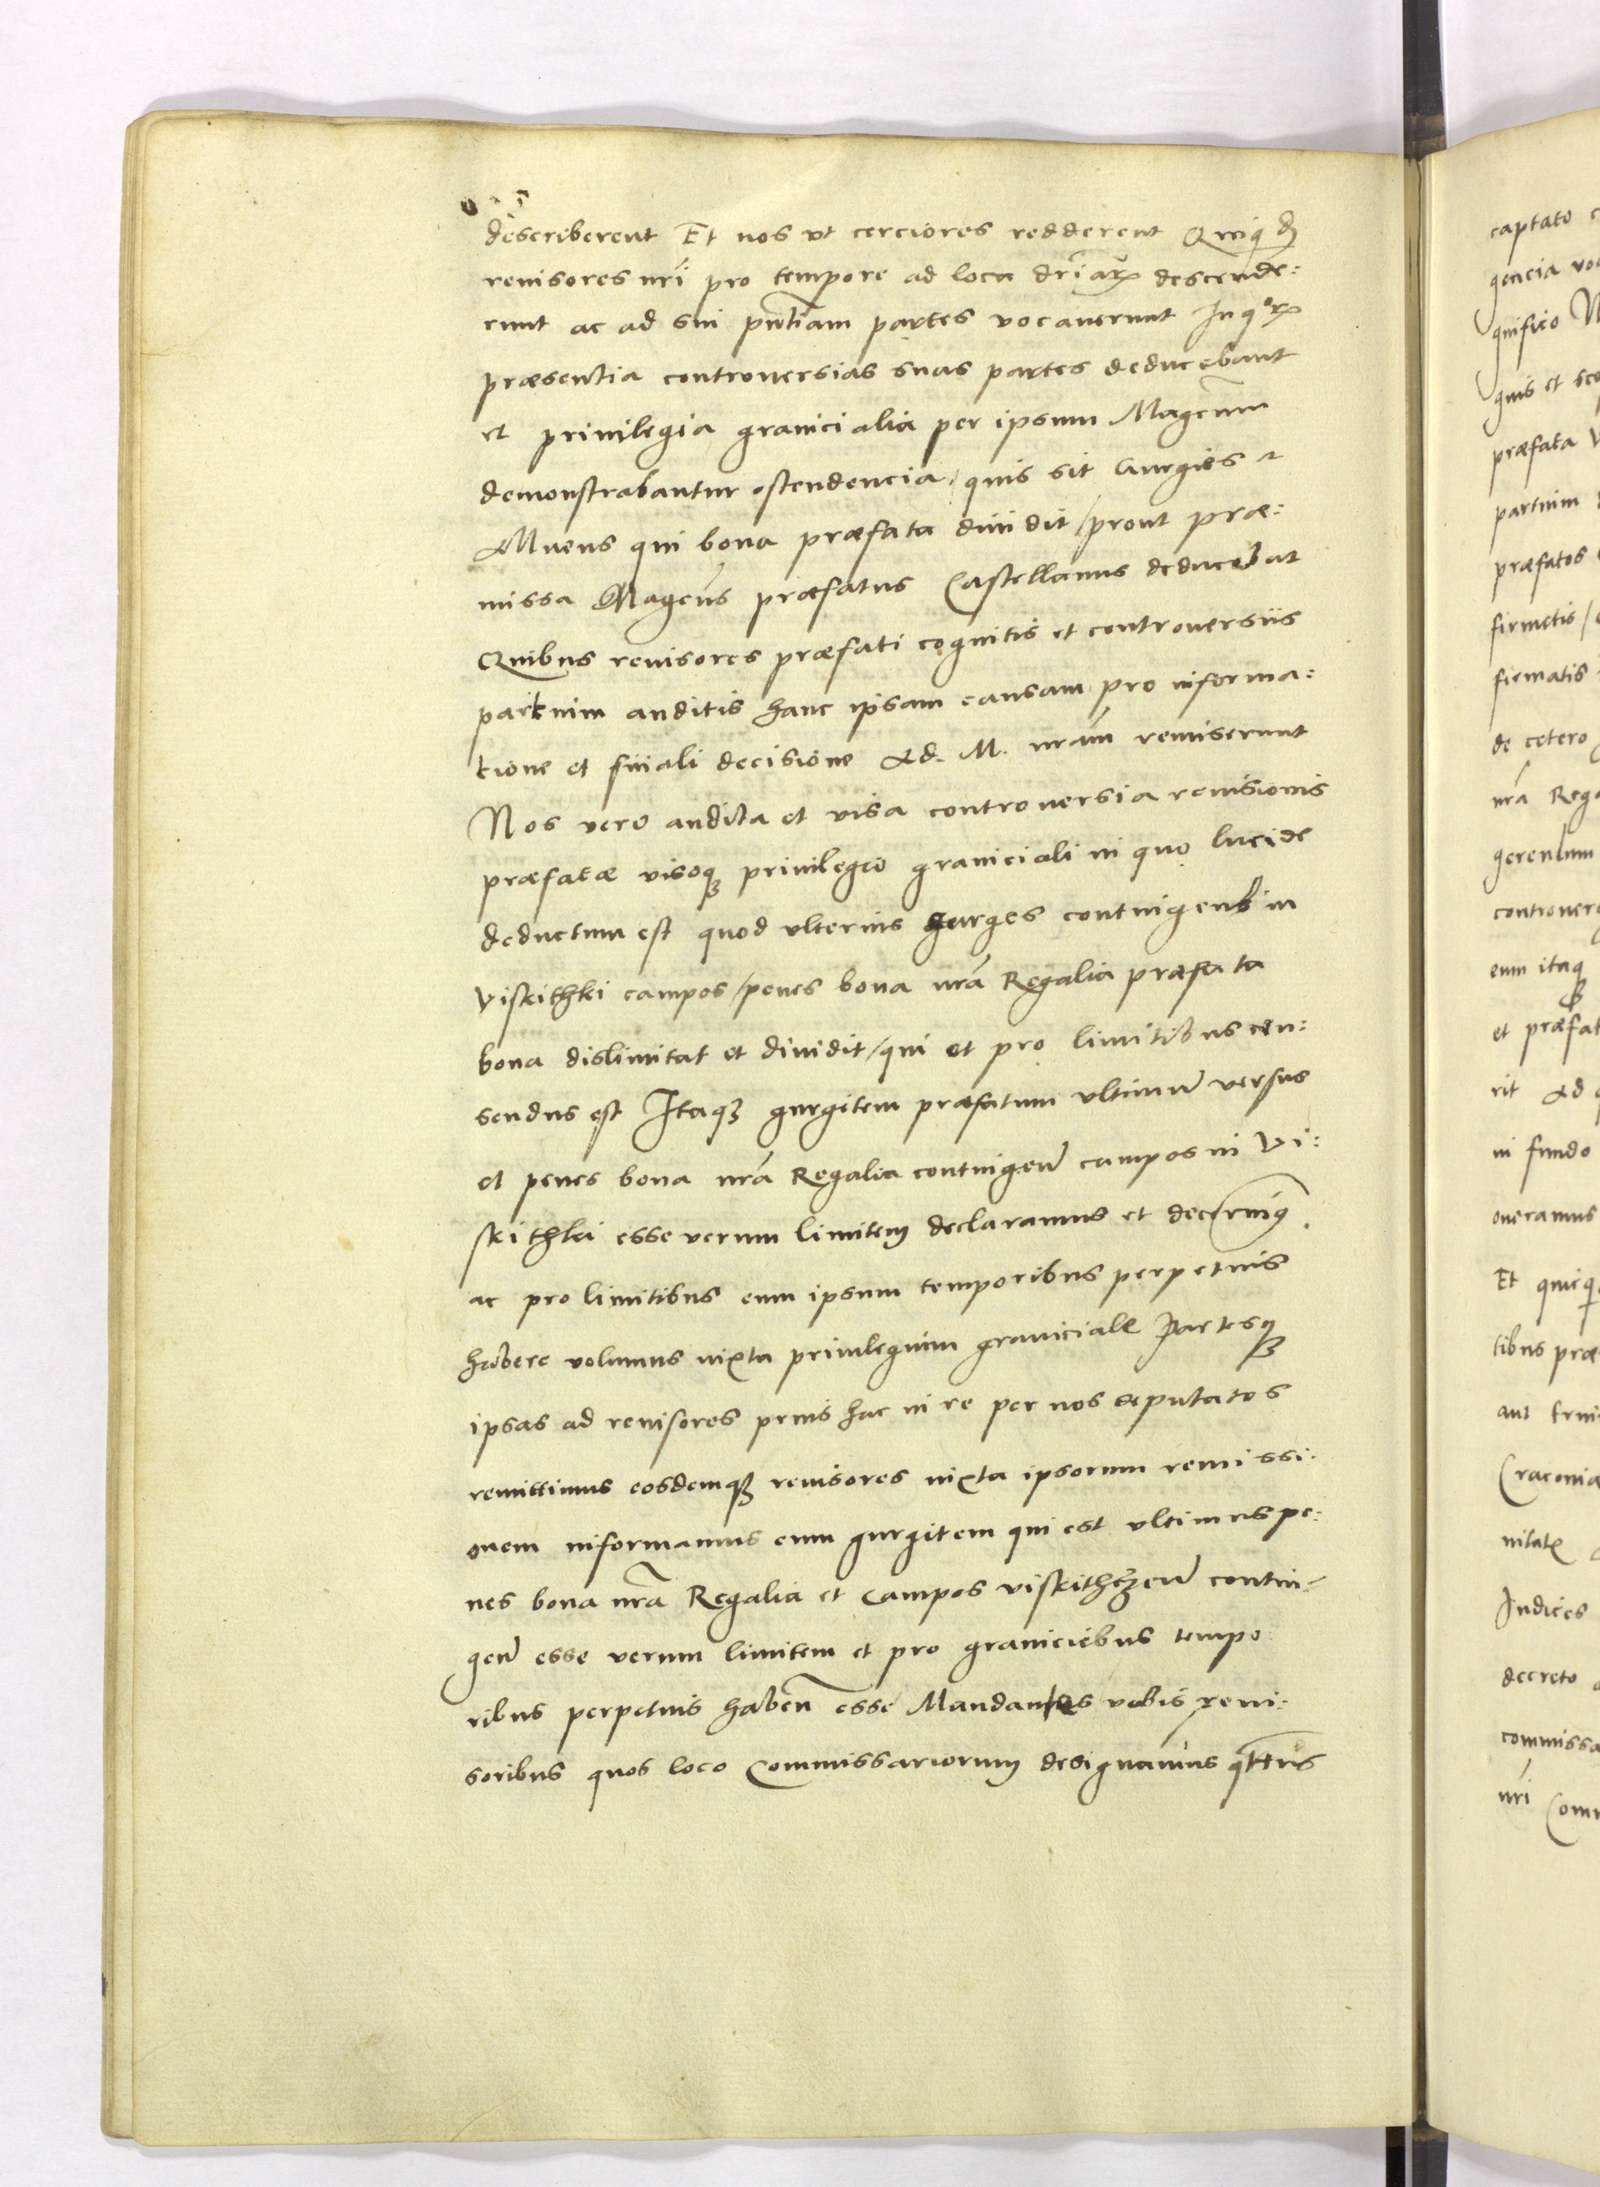 describerent Et nos ut cerciores redderent Quiq
revisores nri pro tempore ad loca driarx descende:
runt ac ad sui pntiam partes vocaverunt In qorx
præsentia controversias suas partes deducebant
et privilegia granicialia per ipsum Magcum
demonstrabantur ostendencia / quis sit Gurgies
fluens qui bona præfata dividit / prout præ:
missa Magcus præfatus Castellanus deducebat
Quibus revisores præfati cognitis et controversiis
partium auditis hanc ipsam causam pro informa:
tione et finali decisione Ad. M. nram remiserunt
Nos vero audita et visa controversia revisionis
præfatæ visoq privilegio graniciali in quo lucide
deductum est quod ulterius gurges contingens in
Viskithki campos / penes bona nra Regalia præfata
bona dislimitat et dividit / qui et pro limitibus cen:
sendus est Itaq gurgitem præfatum ultimum versus
et penes bona nra Regalia contingen campos in Vi:
skithki esse verum limitem declaramus et decernim9
ac pro limitibus eum ipsum temporibus perpetuis
habere volumus iuxta privilegium graniciale Partesq
ipsas ad revisores prius hac in re per nos deputatos
remittimus eosdemq revisores iuxta ipsorum remissi:
onem informamus eum gurgitem qui est ultimus pe:
nes bona nra Regalia et campos viskithczen contin:
gen esse verum limitem et pro graniciebus tempo
ribus perpetuis haben esse Mandantes vobis revi:
soribus quos loco Commissariorum designamus qtens
captato
gencia
gnifico
quis et
præfata
partium
præfatos
firmetis /
firmatis
de cetero
nra Rega
gerentum
controvers
eum itaq
et præfat
rit Ad
in fundo
oneramus
Et quicq
tibus præ
aut
Cracovia
nitatx
Iudices
decreto
commissa
nri Com